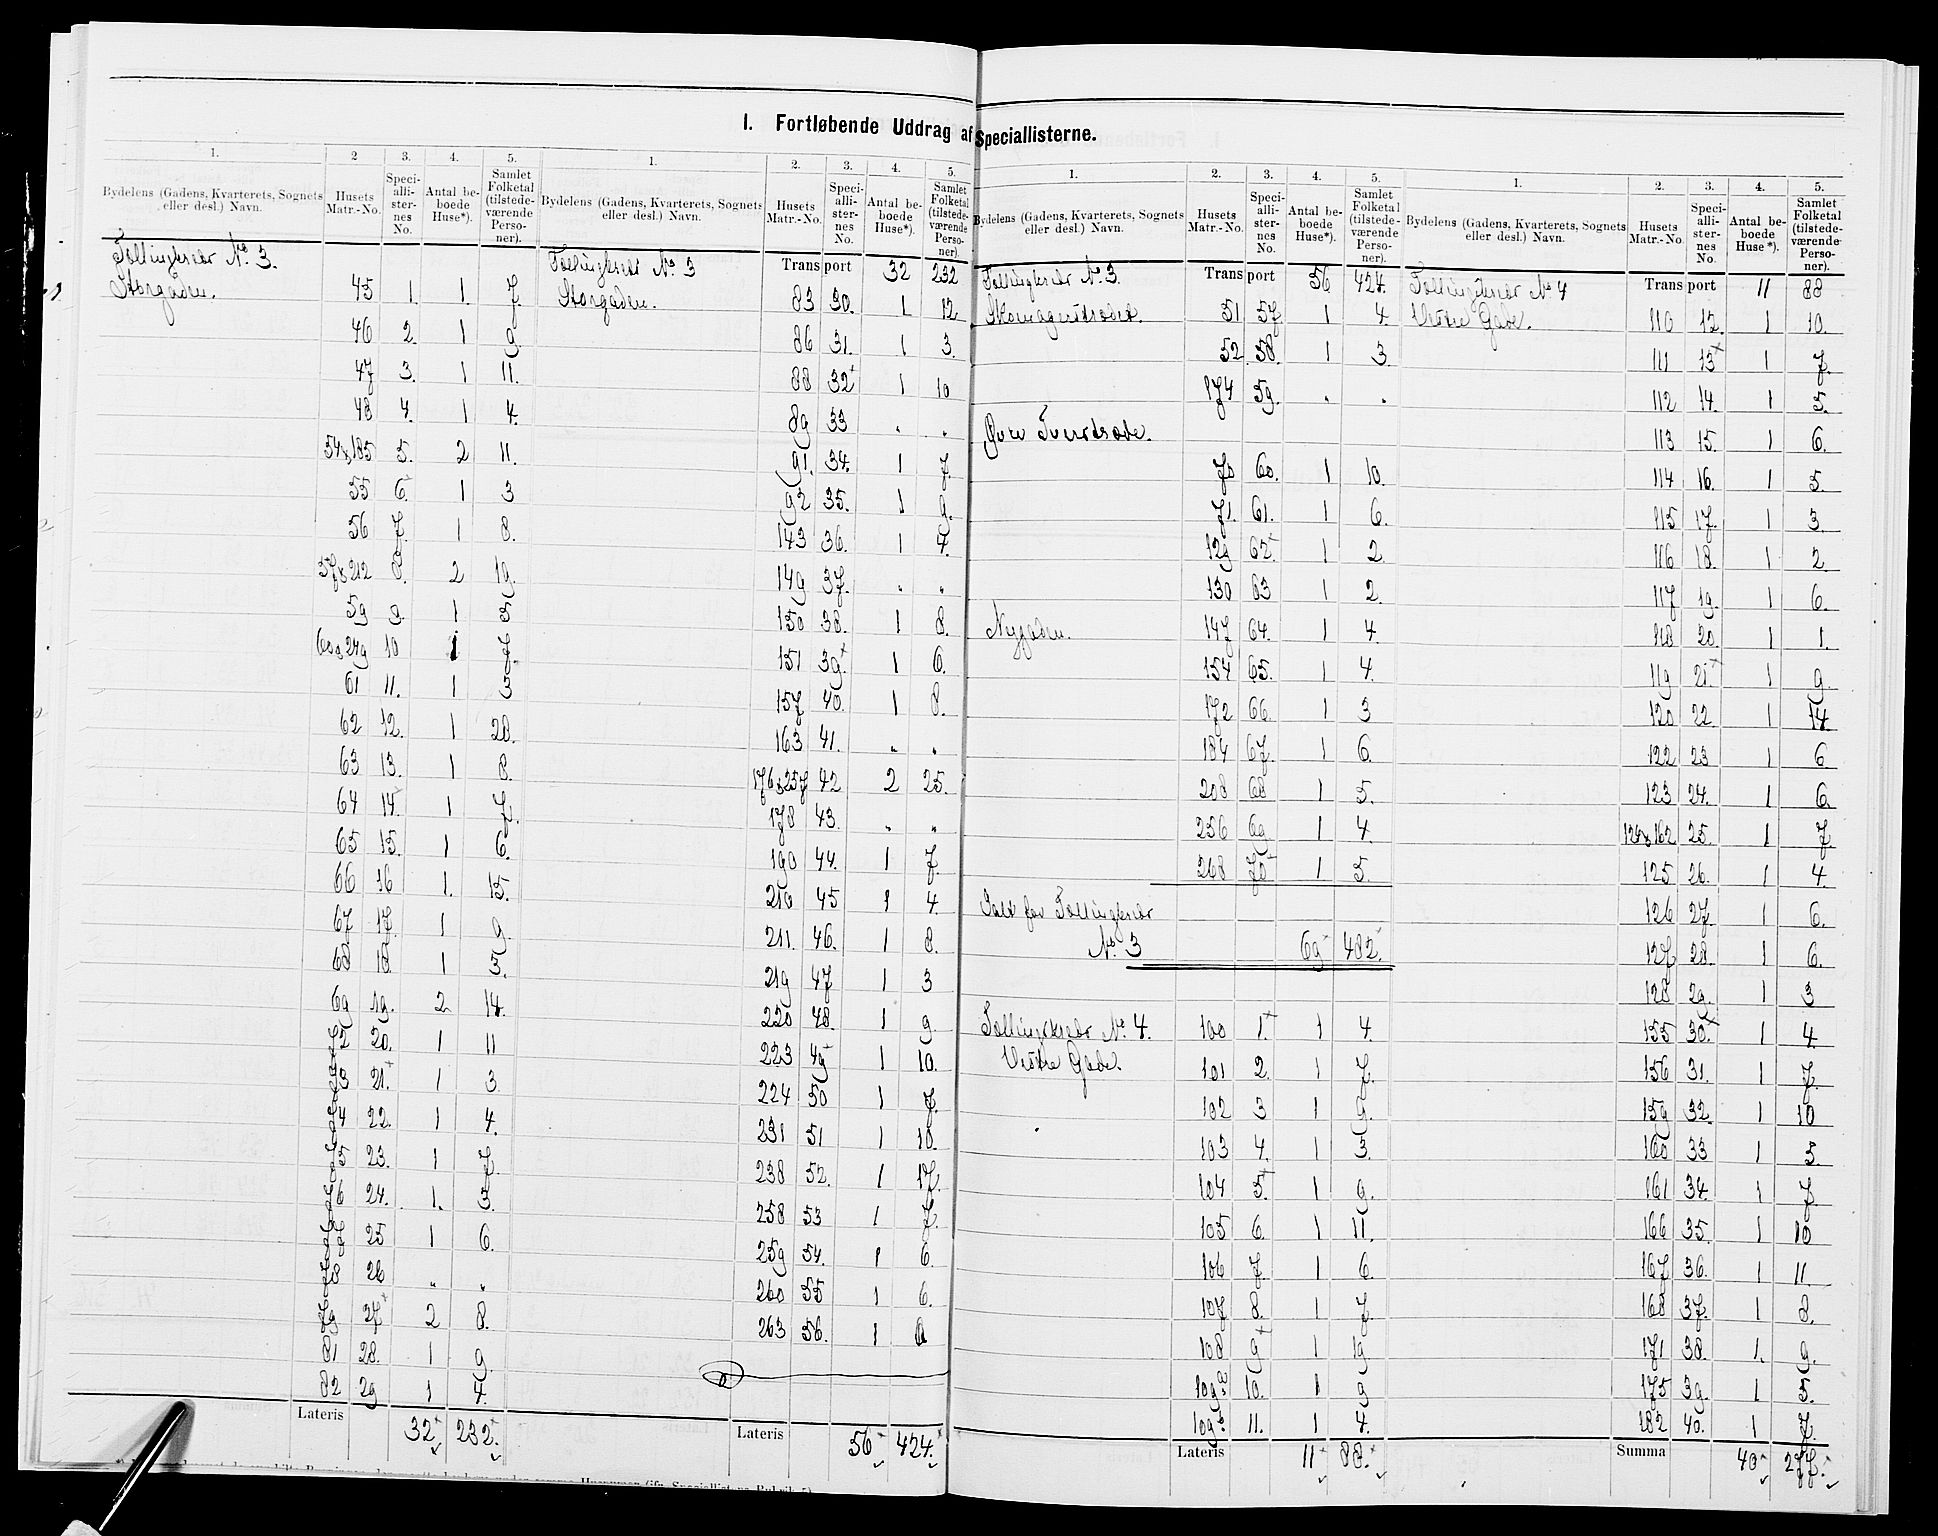 I. Fortløbende Uddrag af Speciallisterne.
1. 2 3. 4. 5.
Bydelens (Gadens, Kvarterets, Sognets eller desl.) Navn. Husets Matr.-No. Speciallisternes No. Antal beboede Huse*). Samlet Folketal (tilstedeværende Personer).
Tællingkreds No. 3.
Storgaden. 45 1. 1. 7.
46 2. 1 9.
47 3. 1 11.
48 4. 1 4.
54&185 5. 2 11.
55 6. 1 3
56 7. 1 8.
57&212 8. 2 19.
59 9. 1 5
60&249 10 1 7.
61 11. 1 3
62 12. 1 20.
63 13. 1 8.
64 14 1 7.
65 15. 1 6.
66 16 1. 15.
67 17. 1 9.
68 18. 1 5.
69 19. 2 14.
72 20. 1 11
73 21. 1 3.
74 22. 1 4.
75 23. 1 7.
76 24. 1. 3.
77 25 1 6.
78 26 " "
79 27 2 8.
81 28. 1 9.
82 29 1 4.
Lateris 32 232.
1. 2. 3. 4. 5.
Bydelens (Gadens, Kvarterets, Sognets eller desl.) Navn. Husets Matr.-No. Speciallisternes No. Antal beboede Huse*). Samlet Folketal (tilstedeværende Personer).
Tællingkreds No. 3 Transport 32 232
Storgaden. 83 30. 1 12
86 31. 1 3.
88 32 1 10
89 33 " "
91. 34. 1 7.
92 35. 1 9.
143 36. 1 4.
149 37. " "
150 38. 1 8.
151 39. 1 6.
157 40. 1 8.
163 41. " "
176&257 42 2 25.
178 43. " "
190 44. 1 7.
210 45 1 4.
211. 46. 1 8.
219 47 1 3
220 48. 1 9
223 49 1 10.
224 50 1 7.
231 51 1 10.
238 52. 1 17.
258 53 1 7.
259 54. 1 6.
260 55 1 6.
263 56. 1
Lateris 56 424.
1. 2. 3. 4. 5.
Bydelens (Gadens, Kvarterets, Sognets eller desl.) Navn. Husets Matr.-No. Speciallisternes No. Antal beboede Huse*). Samlet Folketal (tilstedeværende Personer).
Tællingkreds No. 3. Transport 56 424.
Skomagerstrædet. 51 57 1 4.
52 58. 1 3.
174 59. " "
Øvre Tverstræde.
70 60. 1 10.
71. 61. 1 6.
129 62 1 2.
130 63 1 2.
Nygaden. 147 64. 1 4.
154 65. 1 4.
172 66. 1 3
184 67. 1 6.
208 68 1 5.
256 69 1 4.
268 70 1 5.
Ialt for Tællingkreds
No. 3 69 482.
Tællingkreds No. 4. 100 1. 1 4.
Vestre Gade. 101 2. 1 7.
102 3 1 9.
103 4. 1 3.
104 5. 1 9.
105 6. 1 11.
106 7. 1 6.
107 8. 1 7.
108 9 1 19
109a 10. 1 9
109b 11. 1 4.
Lateris 11 88.
1. 2. 3. 4. 5.
Bydelens (Gadens, Kvarterets, Sognets eller desl.) Navn. Husets Matr.-No. Speciallisternes No. Antal beboede Huse*). Samlet Folketal (tilstedeværende Personer).
Tællingkreds No. 4 Transport 11 88
Vestre Gade. 110 12. 1 10.
111 13 1 7.
112 14. 1 5.
113 15. 1 6.
114 16. 1 5.
115 17. 1 3.
116 18. 1 2.
117 19. 1 6.
118 20. 1 1.
119 21. 1 9.
120 22. 1 14.
122 23 1 6
123 24. 1 6.
124&162 25. 1 7.
125 26. 1 4.
126 27. 1 6.
127 28. 1 6.
128 29. 1 3
155 30. 1 4.
156 31. 1 7.
159 32. 1 10
160 33 1 5.
161 34. 1 7
166 35. 1 10
167 36. 1 11.
168 37. 1 8.
171 38. 1. 9.
175 39. 1 5.
182 40. 1 7.
Summa 40 277.